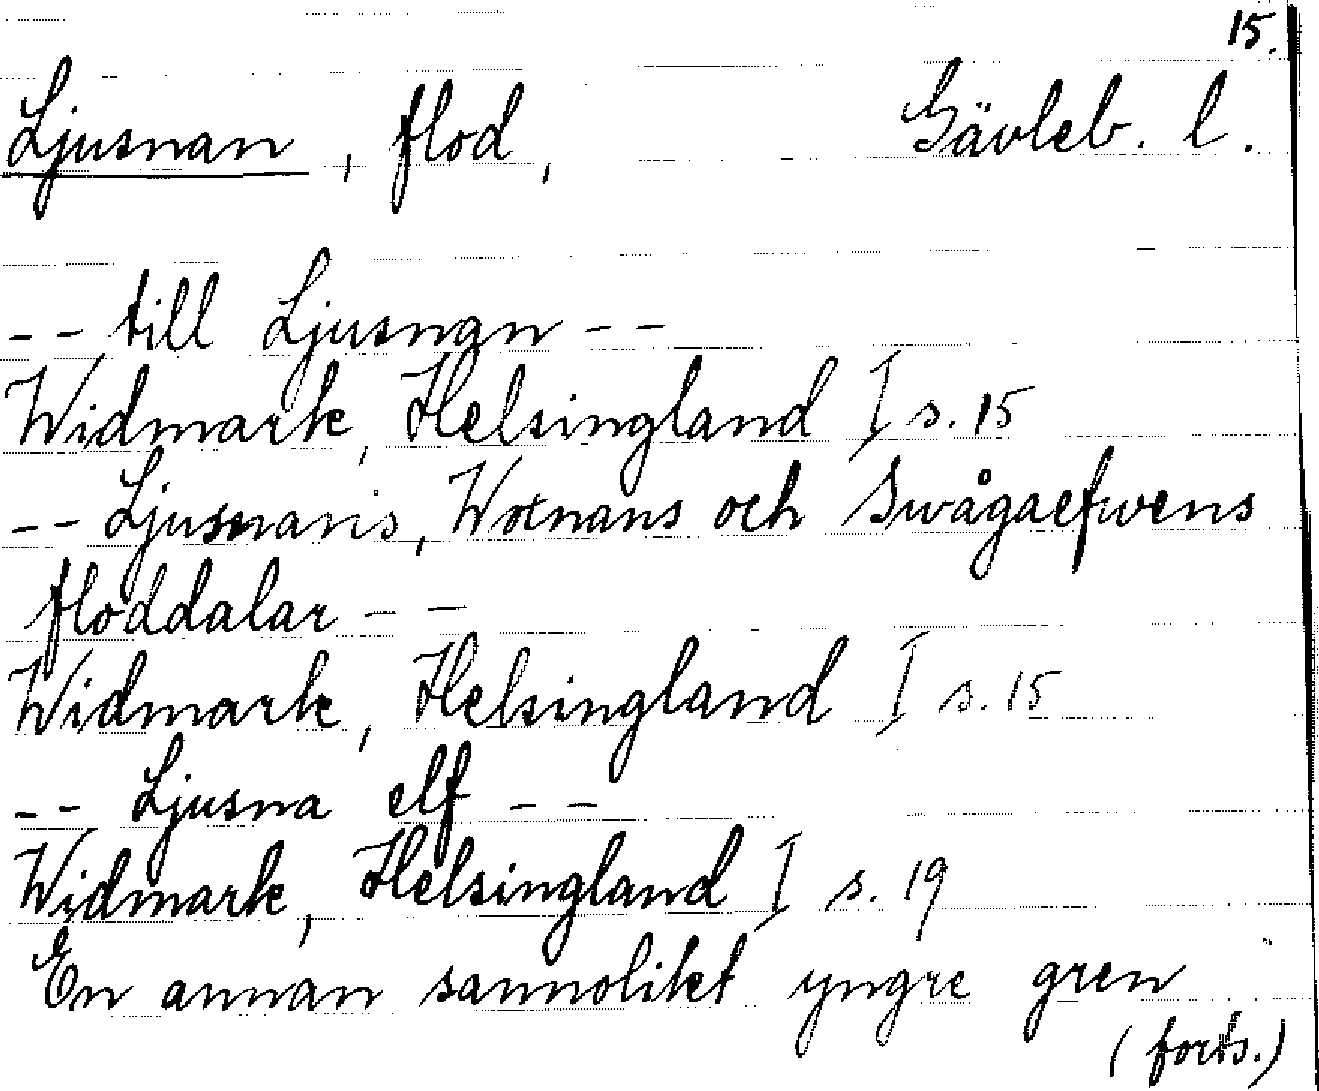 15.
Ljusnan, flod, Gävleb. l.
-- till Ljusnan --
Widmark, Helsingland I s. 15
-- Ljusnans, Woxnans och Swågaefwens
floddalar --
Widmark, Helsingland I s. 15
-- Ljusna elf --
Widmark, Helsingland I s. 19
En annan sannolikt yngre gren
(forts.)